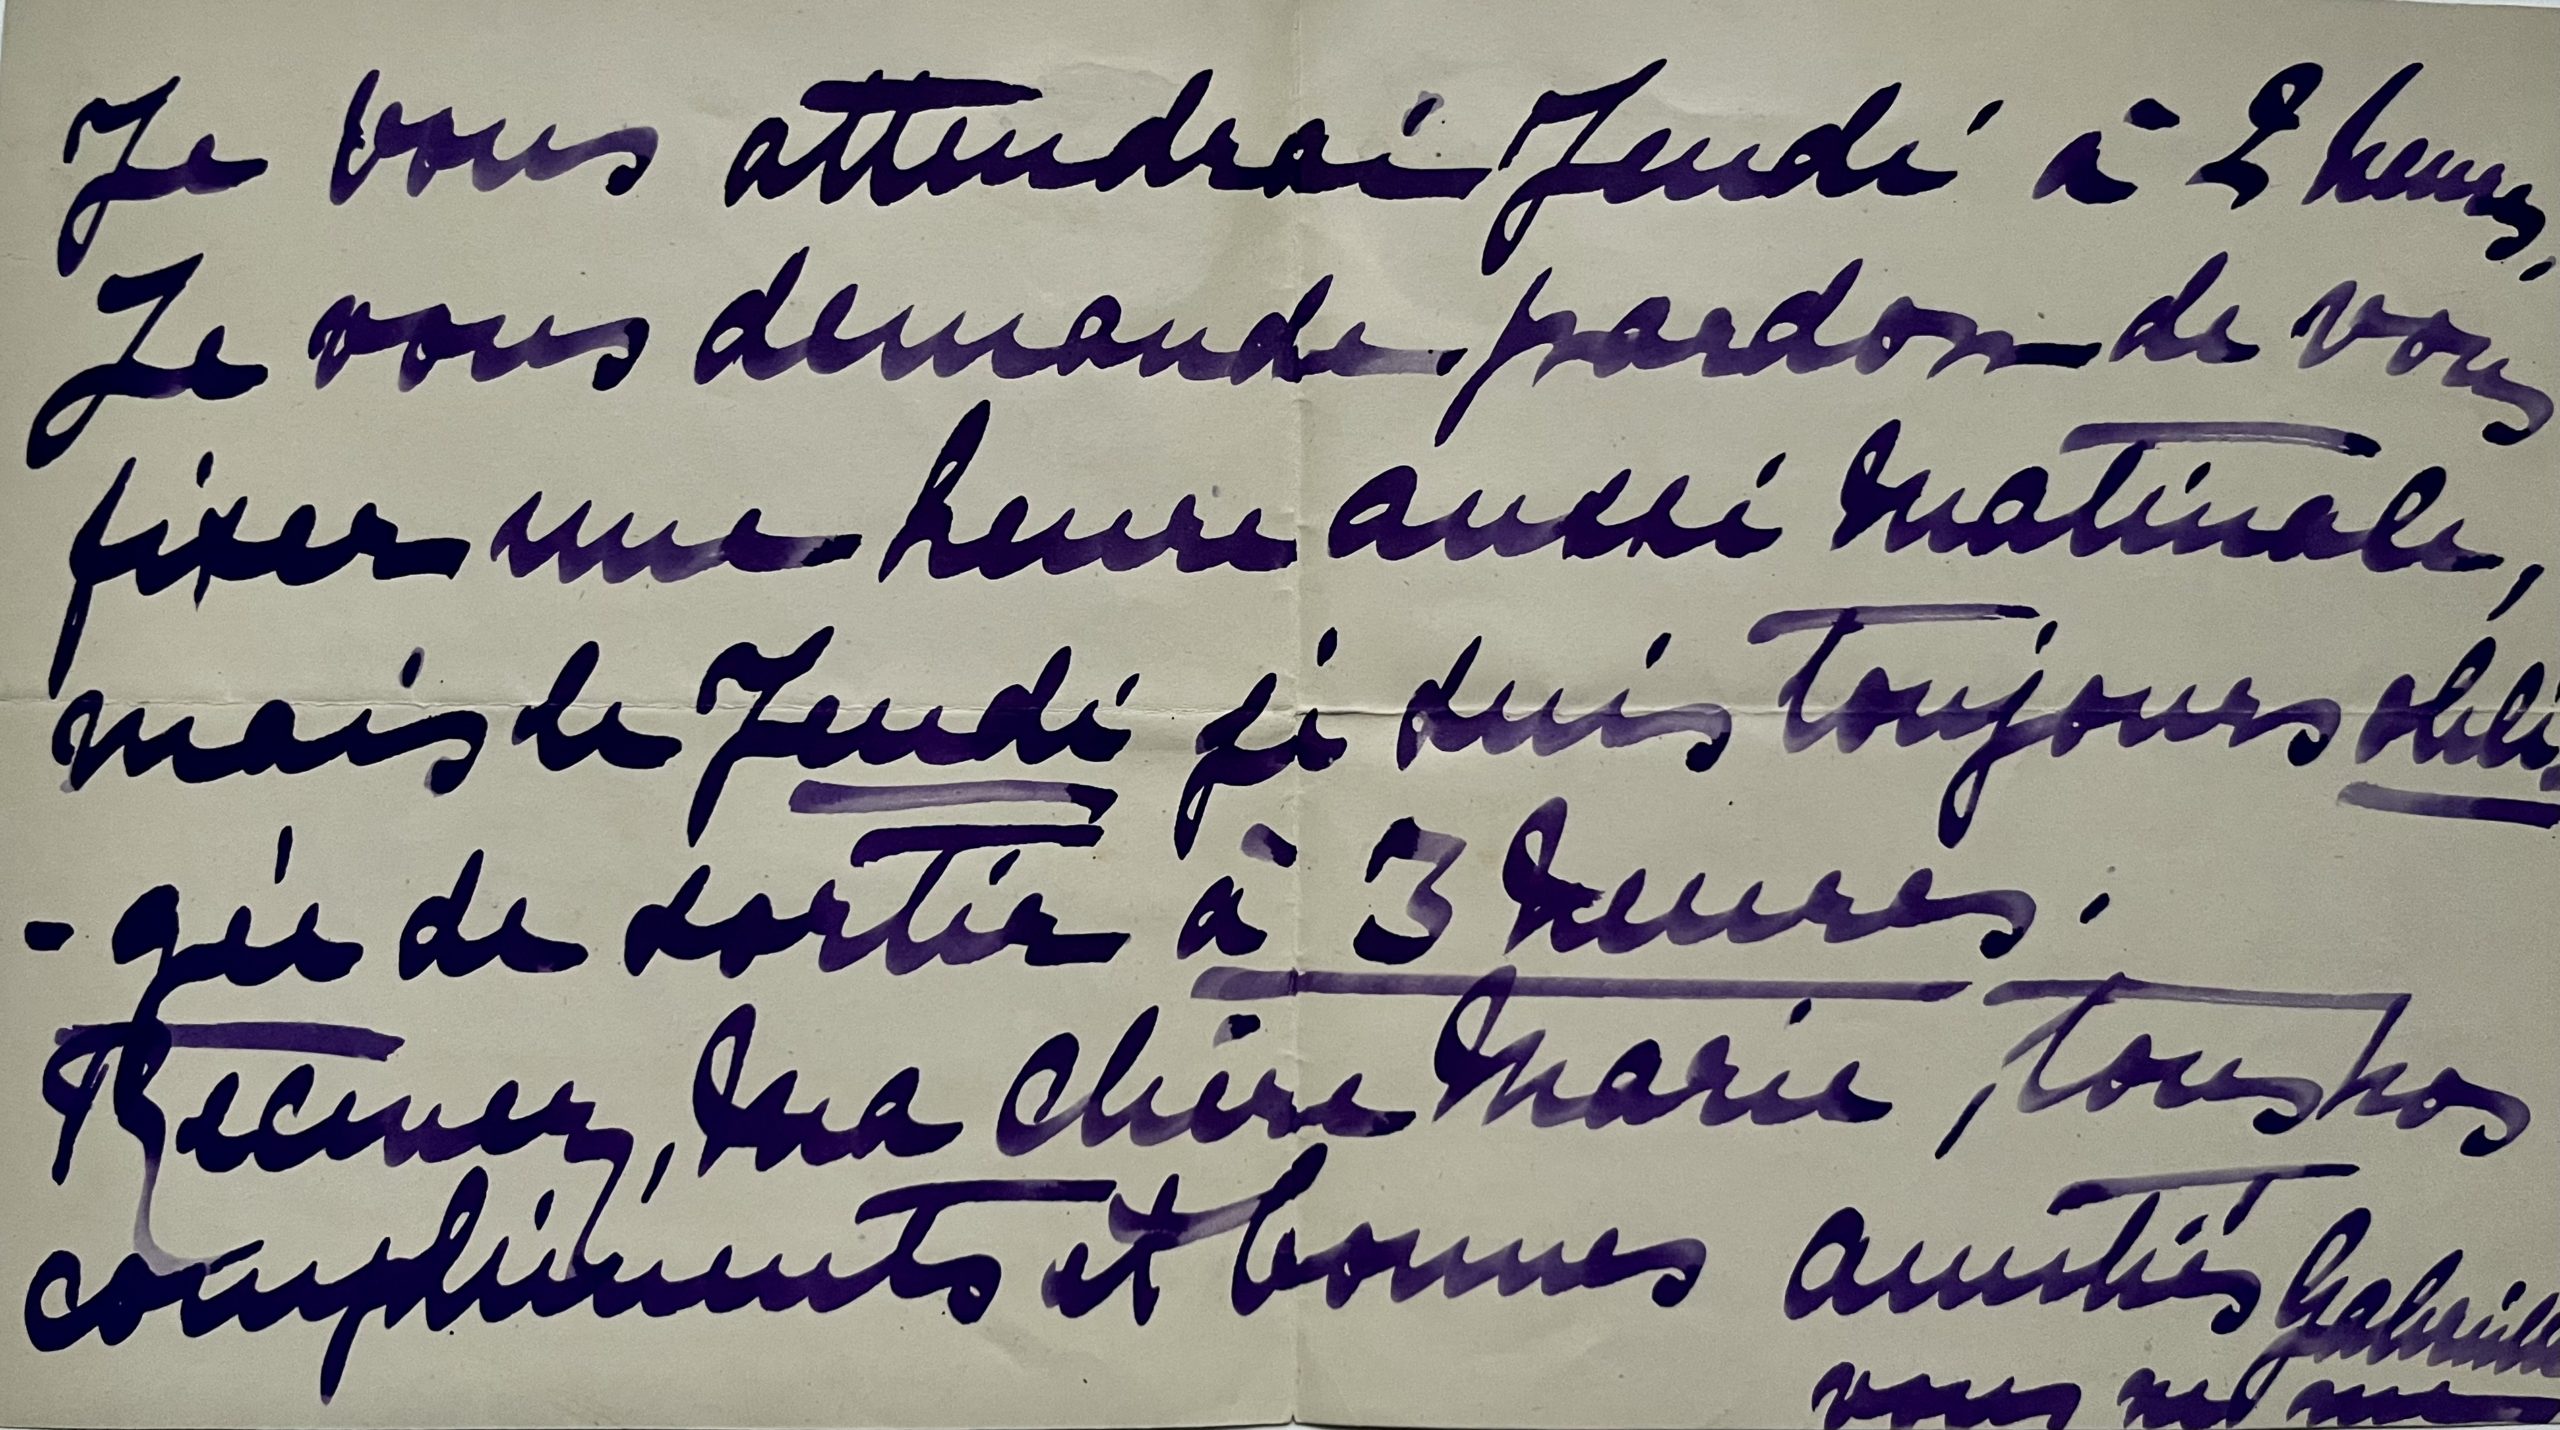 Je vous attendrai Jeudi à 2 heures.
Je vous demande pardon de vous
fixer une heure aussi matinale,
mais le Jeudi je suis toujours obli
-gée de sortir à 3 heures.
Recevez, ma chère Marie, tous nos
compliments et bonnes amitiés Gabrielle
vous